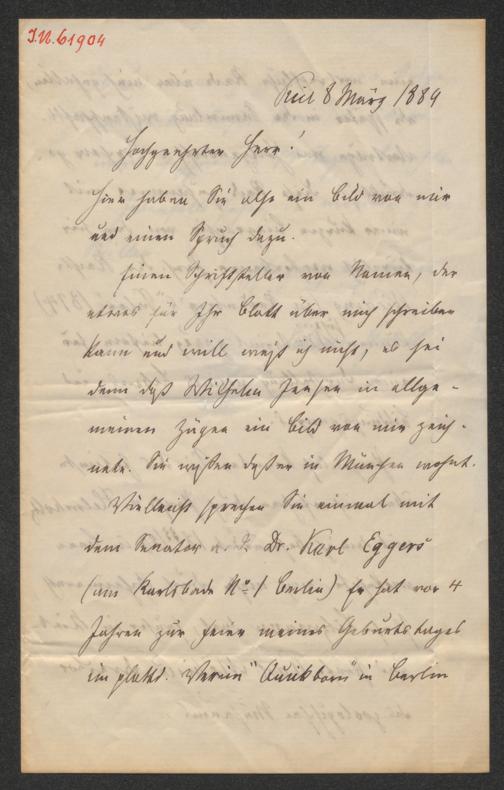 I.N. 61904
Kiel 8 März 1889
Hochgeehrter Herr!
Hier haben Sie also ein Bild von mir
und einen Spruch dazu.
Einen Schriftsteller von Namen, der
etwas für Ihr Blatt über mich schreiben
kann und will weiß ich nicht, es sei
denn daß Wilhelm Jensen in allge-
meinen Zügen ein Bild von mir zeich-
nete. Sie wissen daß er in München wohnt.
Vielleicht sprechen Sie einmal mit
dem Senator a. D. Dr. Karl Eggers
(am Karlsbade No 1 Berlin) Er hat vor 4
Jahren zur Feier meines Geburtstages
im plattd. Verein "Quickborn" in Berlin